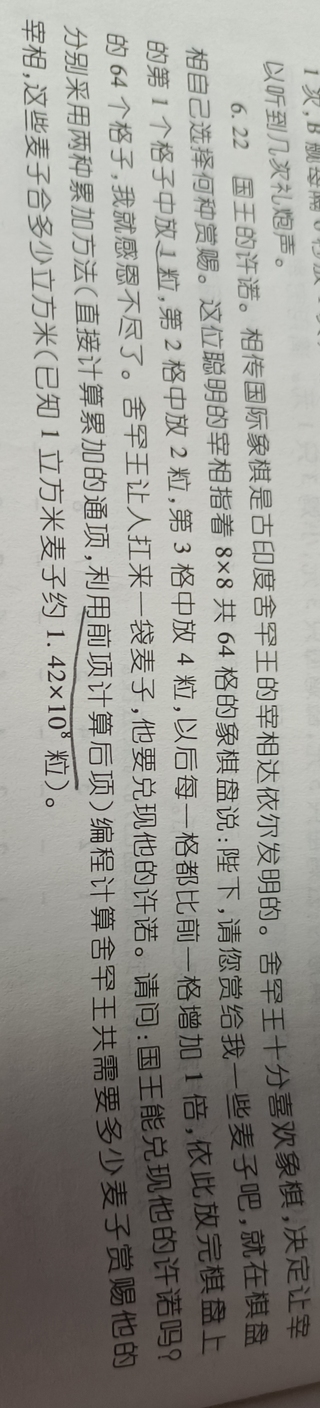 以听到几次礼炮声。
6.22 国王的许诺。相传国际象棋是古印度舍罕王的宰相达依尔发明的。舍罕王十分喜欢象棋,决定让宰
相自己选择何种赏赐。这位聪明的宰相指着 8×8 共 64 格的象棋盘说:陛下,请您赏给我一些麦子吧,就在棋盘
的第 1 个格子中放 1 粒,第 2 格中放 2 粒,第 3 格中放 4 粒,以后每一格都比前一格增加 1 倍,依此放完棋盘上
的 64 个格子,我就感恩不尽了。舍罕王让人扛来一袋麦子,他要兑现他的许诺。请问:国王能兑现他的许诺吗?
分别采用两种累加方法(直接计算累加的通项,利用前项计算后项)编程计算舍罕王共需要多少麦子赏赐他的
宰相,这些麦子合多少立方米(已知 1 立方米麦子约 1.42×10⁸ 粒)。